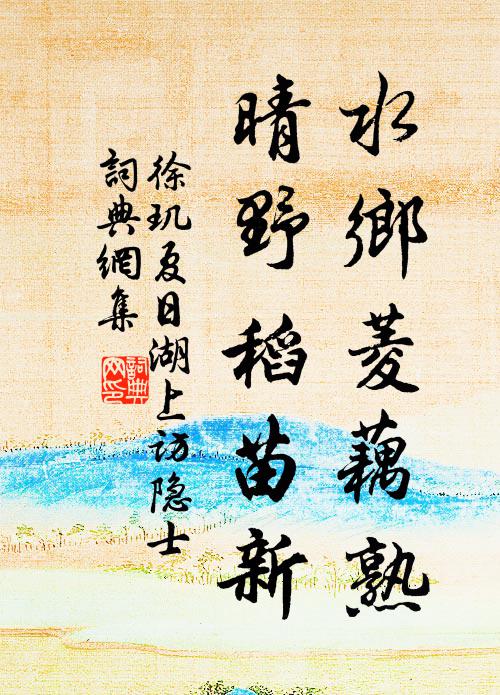 水鄉菱藕熟
晴野稻苗新
徐玑夏日湖上訪隐士
詞典網集
詞典網印